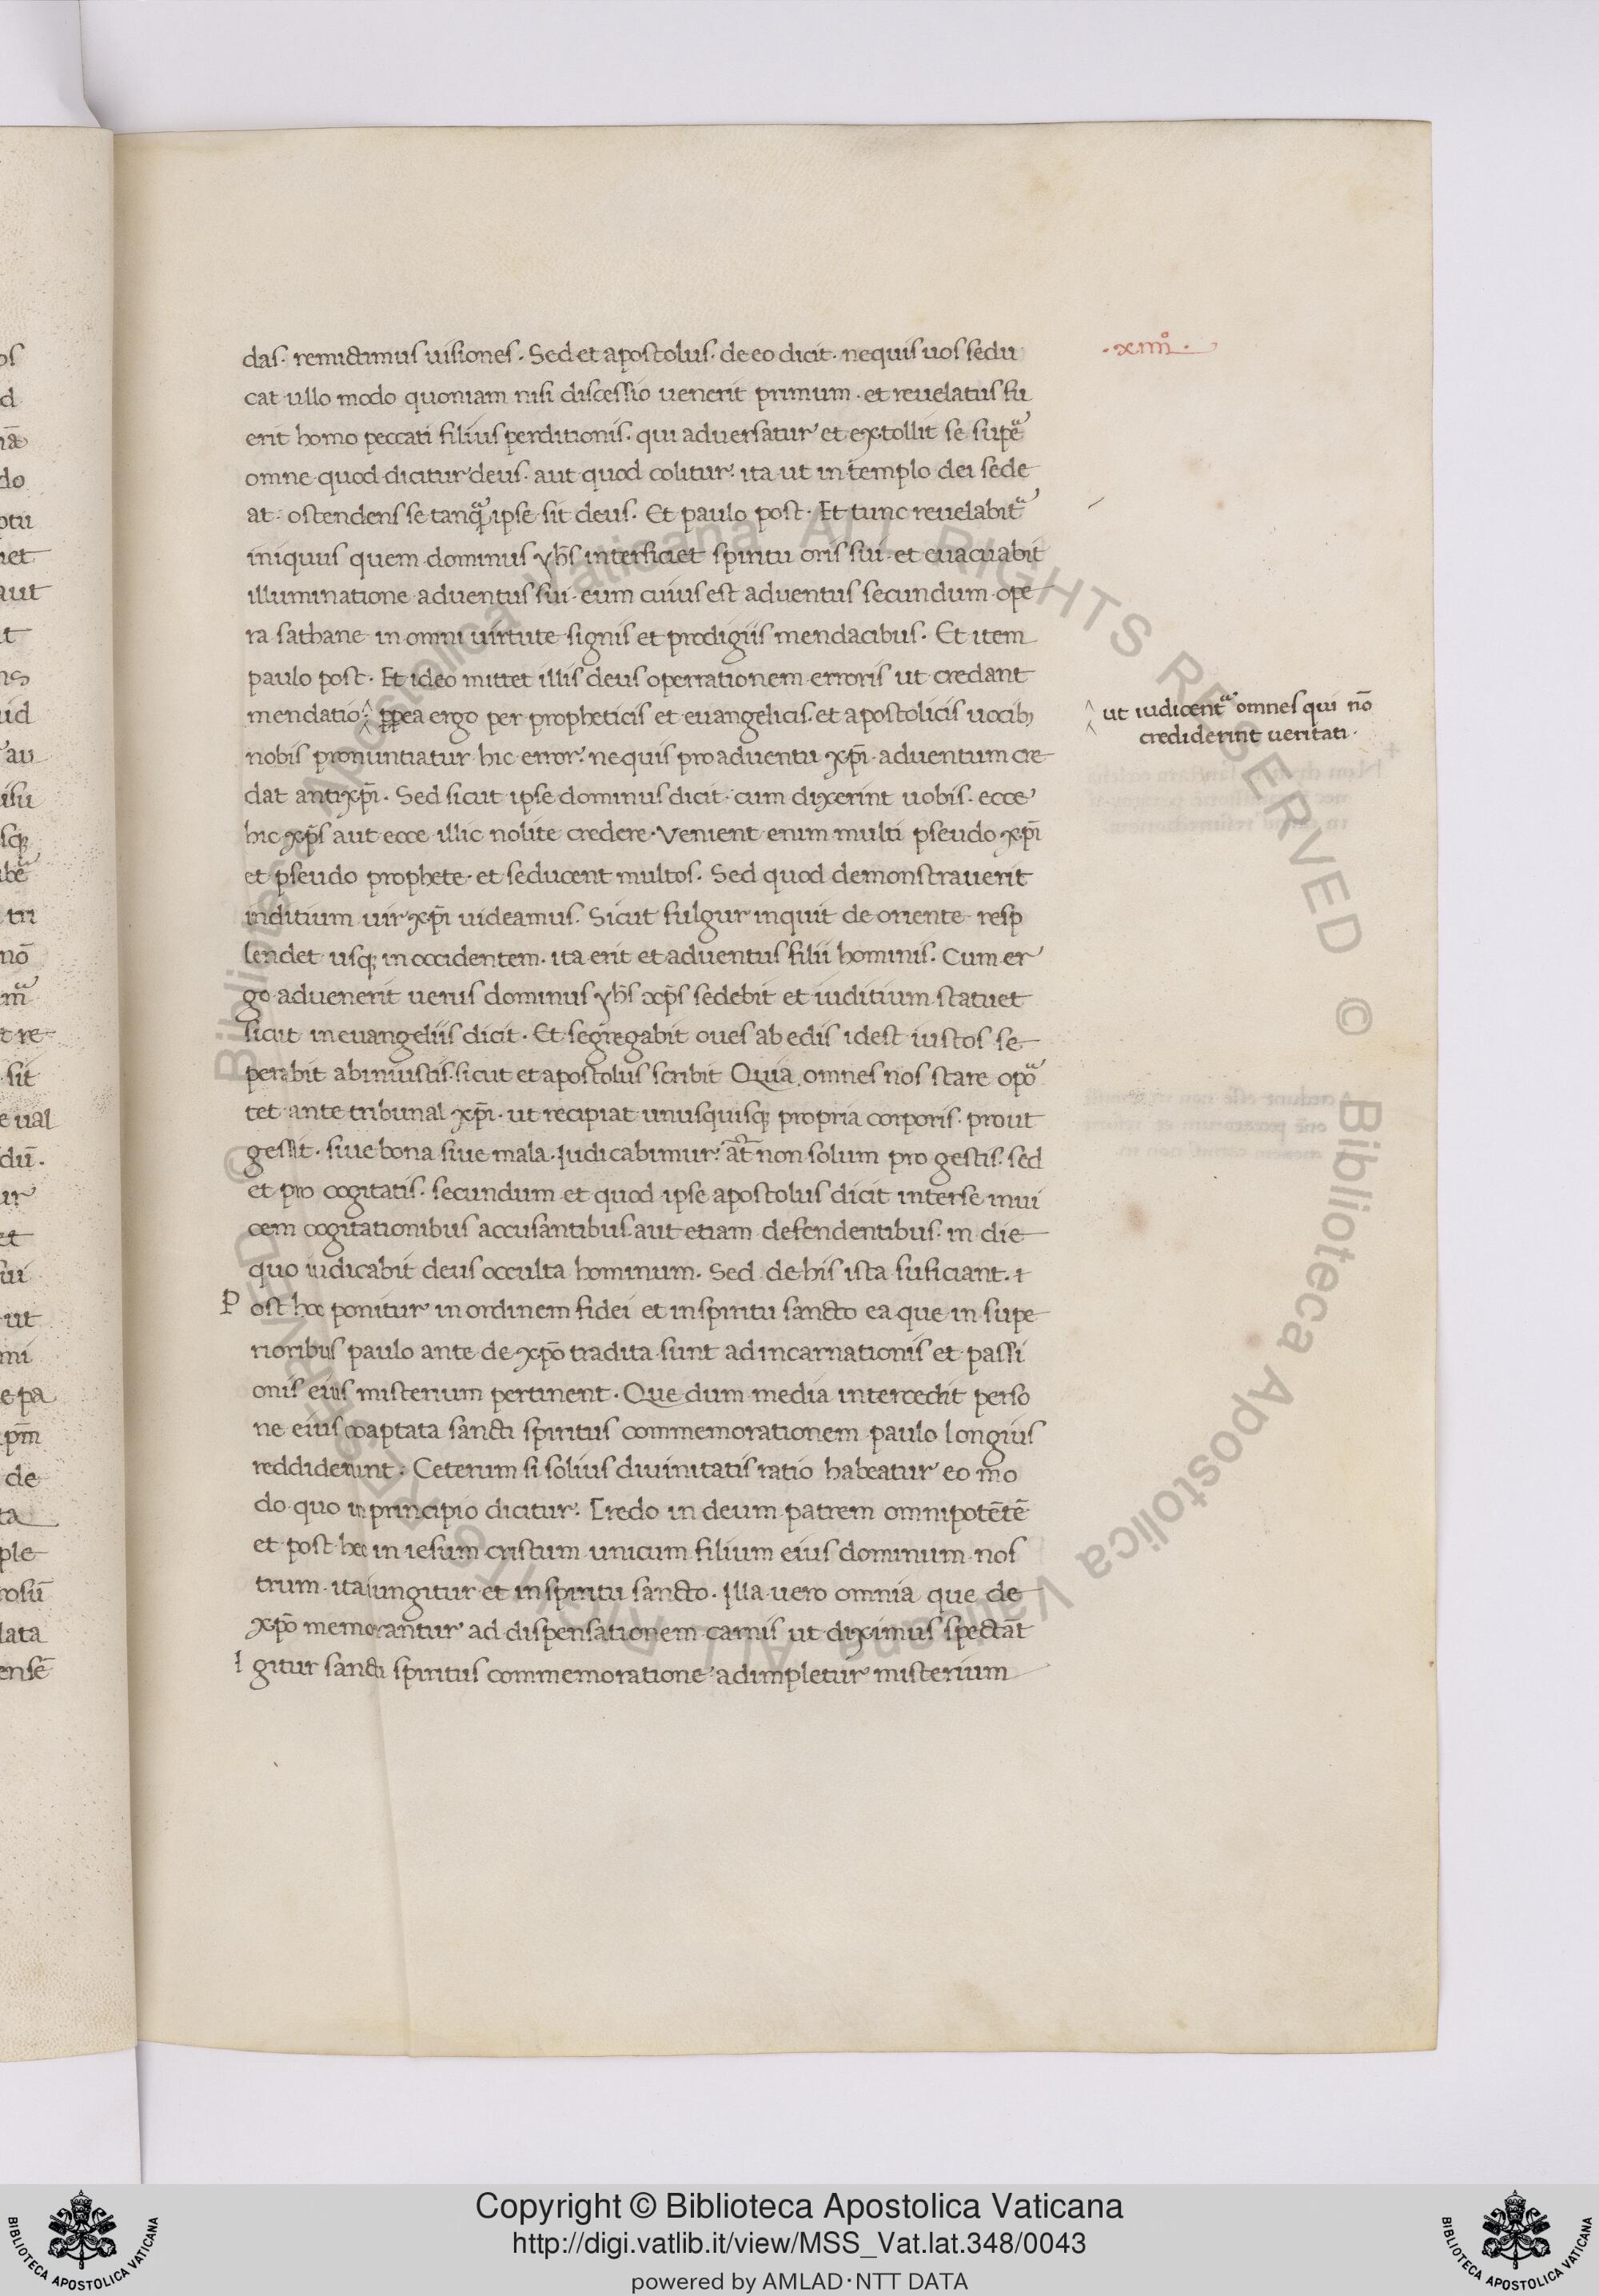 das. remictimus uisiones. Sed et apostolus. de eo dicit. nequis uos sedu
cat ullo modo quoniam nisi discessio uenerit primum. et reuelatus fu
erit homo peccati filius perditionis. qui aduersatur et extollit se supeᷓ
omne quod dicitur deus. aut quod colitur. ita ut in templo dei sede
at. ostendens se tanqᷓ ipse sit deus. Et paulo post. Et tunc reuelabitᷓ
iniquus quem dominus yh̄s interficiet spiritu oris sui. et euacuabit
illuminatione aduentus sui. eum cuius est aduentus secundum ope
ra sathane in omni uirtute signis et prodigiis mendacibus. Et item
paulo post. Et ideo mittet illis deus operrationem erroris ut credant
mendatio. ppea ergo per propheticis et euangelicis. et apostolicis uocib;
nobis pronuntiatur hic error. nequis pro aduentu xp̄i. aduentum cre
dat antixp̄i. Sed sicut ipse dominus dicit. cum dixerint uobis. ecce
hic xp̄s aut ecce illic nolite credere. Venient enim multi pseudo xp̄i
et pseudo prophete. et seducent multos. Sed quod demonstrauerit
inditium uir xp̄i uideamus. Sicut fulgur inquit de oriente resp
lendet usq; in occidentem. ita erit et aduentus filii hominis. Cum er
go aduenerit uerus dominus yh̄s xp̄s sedebit et iuditium statuet
sicut in euangeliis dicit. Et segregabit oues ab edis idest iustos se
perabit abiniustis. sicut et apostolus scribit Quia omnes nos stare opoᷓ
tet ante tribunal xp̄i. ut recipiat unusquisq; propria corporis. prout
gessit. siue bona siue mala. Iudicabimur. at̄ non solum pro gestis. sed
et pro cogitatis. secundum et quod ipse apostolus dicit interse inui
cem cogitationibus accusantibus. aut etiam defendentibus. in die
quo iudicabit deus occulta hominum. Sed de his ista suficiant.
P ost hoc ponitur in ordinem fidei et inspiritu sancto ea que in supe
rioribus paulo ante de xp̄o tradita sunt ad incarnationis et passi
onis eius misterium pertinent. Que dum media intercedit perso
ne eius coaptata sancti spiritus commemorationem paulo longius
reddiderunt. Ceterum si solius diuinitatis ratio habeatur eo mo
do quo in principio dicitur. Credo in deum patrem omnipotētē
et post hec in iesum cristum unicum filium eius dominum nos
trum. ita iungitur et inspiritu sancto. Illa uero omnia que de
xp̄o memorantur ad dispensationem carnis ut diximus spectāt
I gitur sancti spiritus commemoratione adimpletur misterium
.xiiii°.
ut iudicentᷓ omnes qui nō
crediderint ueritati.
Copyright © Biblioteca Apostolica Vaticana
http://digi.vatlib.it/view/MSS_Vat.lat.348/0043
powered by AMLAD·NTT DATA
BIBLIOTECA APOSTOLICA VATICANA
BIBLIOTECA APOSTOLICA VATICANA
© Biblioteca Apostolica Vaticana ALL RIGHTS RESERVED © Biblioteca Apostolica Vaticana ALL RIGHTS RESERVED